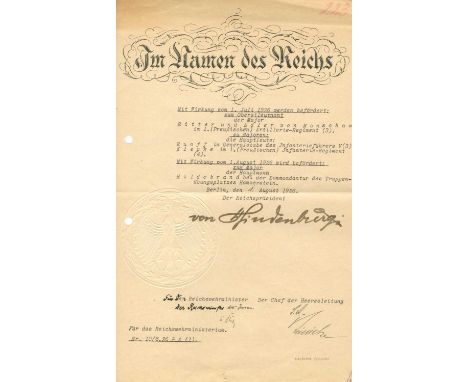 Im Namen des Reichs
Mit Wirkung vom 1. Juli 1926 werden befördert:
zum Oberstleutnant
der Major
Ritter und Edler von
in 1.(Preußischen) Artillerie-Regiment (2),
zu Majoren:
die Hauptleute:
im Generalstabe des Infanterieführers V(3)
im 1.(Preußischen) Infanterie-Regiment
(4).
Mit Wirkung vom 1.August 1926 wird befördert:
zum Major
der Hauptmann
Hildebrand bei der Kommandantur des Truppen-
übungsplatzes Hammerstein.
Berlin, den August 1926.
Der Reichspräsident
von Hindenburg
Für den Reichswehrminister Der Chef der Heeresleitung
Für das Reichswehrministerium.